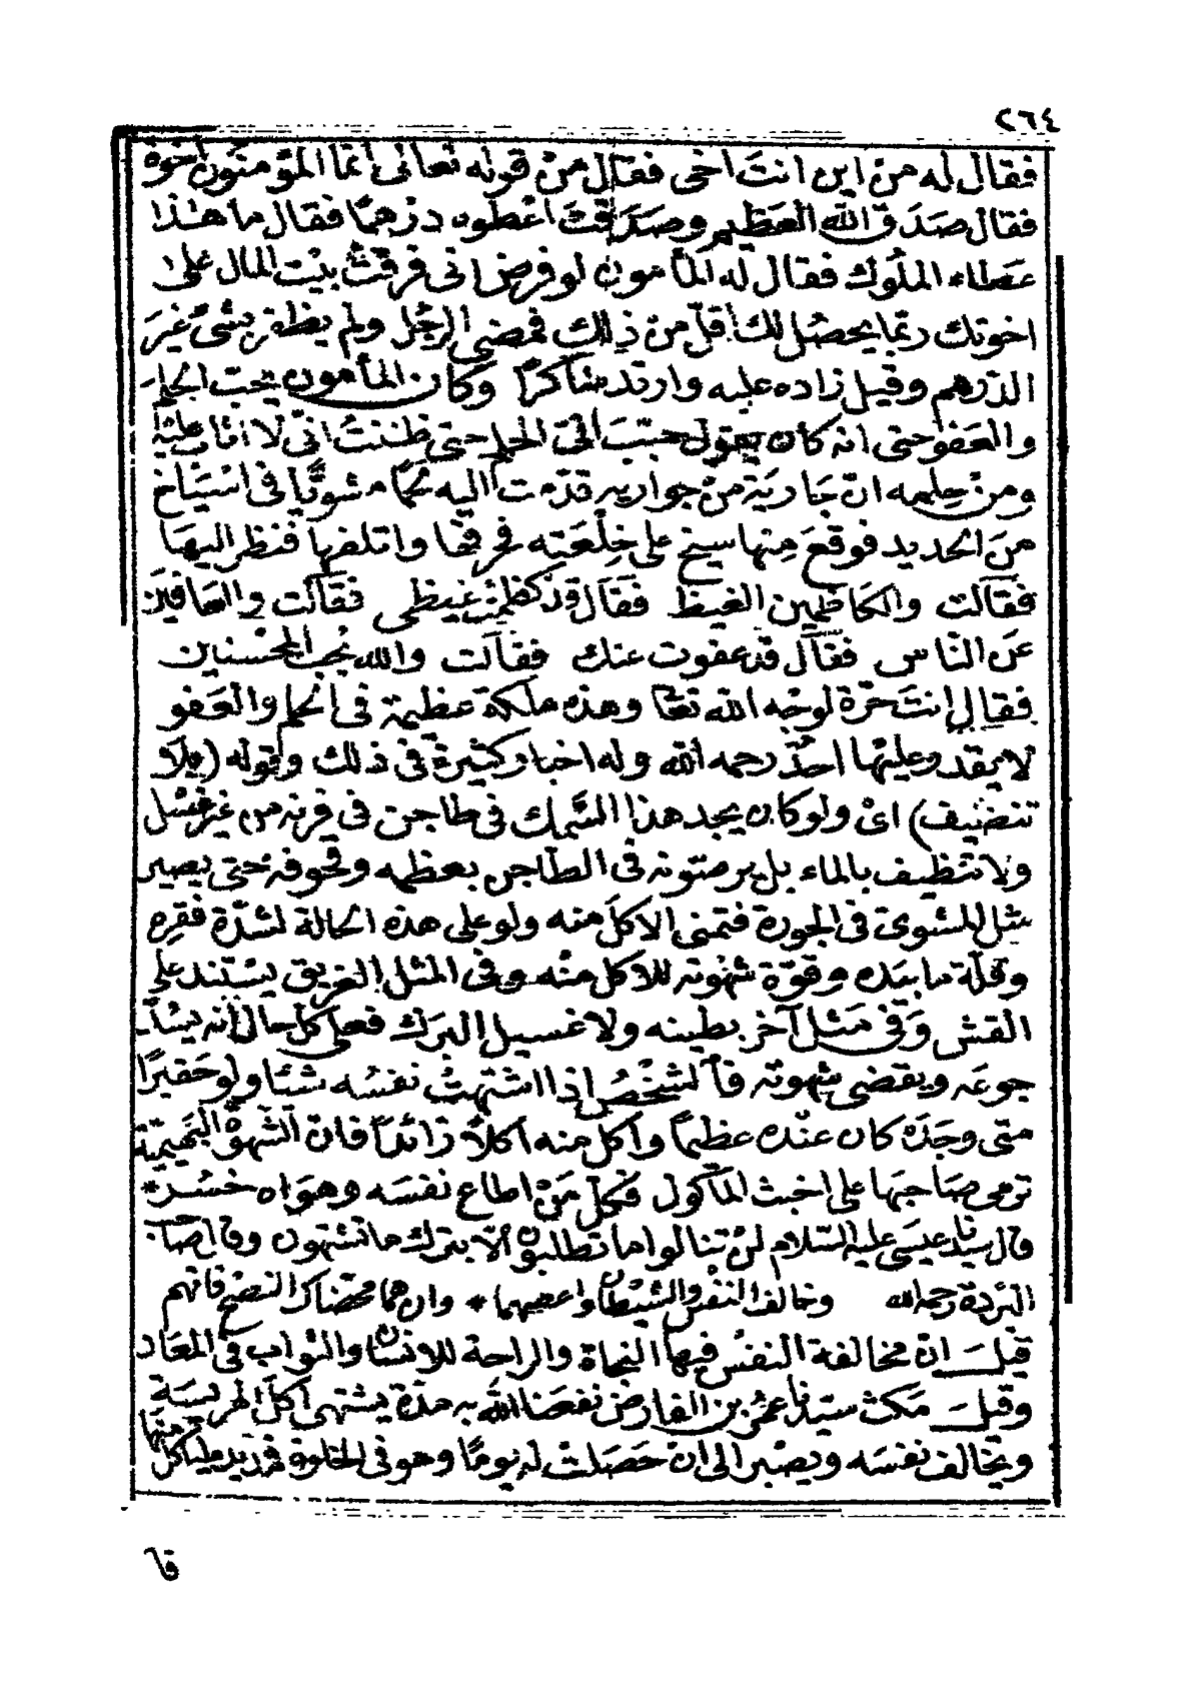 ٢٦٤
فقال له من اين انتَ اخى فقال منْ قوله تعالى انما المؤمنون اخوة
فقال صَدَق الله العَظيم وصَدَقتَ اعْطوه درْهمًا فقال ما هٰذا
عَطاء الملُوك فقال له المأمون لو فرض انى فرقتُ بيْت المال على
اخوتك ربّما يحصُل لك أقلّ منْ ذلك فمضى الرجُل ولم يظفر بشىءٍ غيرَ
الدّرهم وقيل زاده عليه وارتد شاكرًا وكان المأمون يحبّ الحلم
والعَفوحتى انه كان يقول حبّبَ الىّ الحلم حتى ظننتُ انّى لا اثاب عليْه
ومنْ حِلمه انّ جَارية منْ جواريه قدّمت اليه لحمًا مشويًّا فى اسْيَاخ
منَ الحديد فوقعَ مِنها سيخ على خِلْعَته فحرقها واتلفها فنظر اليهَا
فقالت والكاظمين الغيظ فقال قدْ كظمت غيظى فقالت والعَافينَ
عَن النّاس فقال قدْ عفوت عنك فقالت والله يُحبّ المحْسنين
فقال انتَ حرّة لوجْه الله تعا وهذه ملكة عظيمة فى الحلم والعَفو
لا يقدر عليْها احدٌ رحمه الله وله اخبار كثيرة فى ذلك وقوله (بلا
تنضيف) اىْ ولو كان يجد هذا السّمك فى طاجن فى فرنه من غير غسْل
ولا تنظيف بالماء بل يرصّونه فى الطّاجن بعظمه وقحوفه حتى يصير
مثل المشوىّ فى الجورة فتمنى الاكلَ منه ولو على هذه الحالة لشدّة فقره
وقلّة ما بيَده وقوّة شهْوته للاكل منْه وفى المثل الغريق يسْتند على
القش وَفى مَثل آخر بطينه ولا غسيل البرَك فعلى كل حال انه يسُدّ
جوعَه ويقضى شهوته فالشخْصُ اذا اشتهتْ نفسُه شئا ولو حَقيرًا
متى وجَدَه كان عنْده عظيمًا واكل منه اكلاً زائدًا فانّ الشهوة البهيميّة
ترمى صَاحبَها على اخبث المأكول فكلّ مَنْ اطاع نفسَه وهوَاه خسْر*
قال سيّدنا عيسَى عليه السّلام لنْ تنالوا ما تطلبون الّا بترك ما تشتهون وقال صَاحب
البردة رحمه الله وخالف النفس والشيْطان واعصهما * وان هما محّضاك النصْح فاتهم
قيل انّ مخالفة النفسْ فيها النجاة والراحة للانسان والثواب فى المعَاد
وقيل مَكث سيّدنا عمر بن الفارض نفعَنا الله به مدّة يشتهى اكل الهريسَة
ويخالف نفسَه ويصْبر الى انْ حَصَلتْ له يومًا وهو فى الخلوة فمدّ يده ليأكل منها
قا